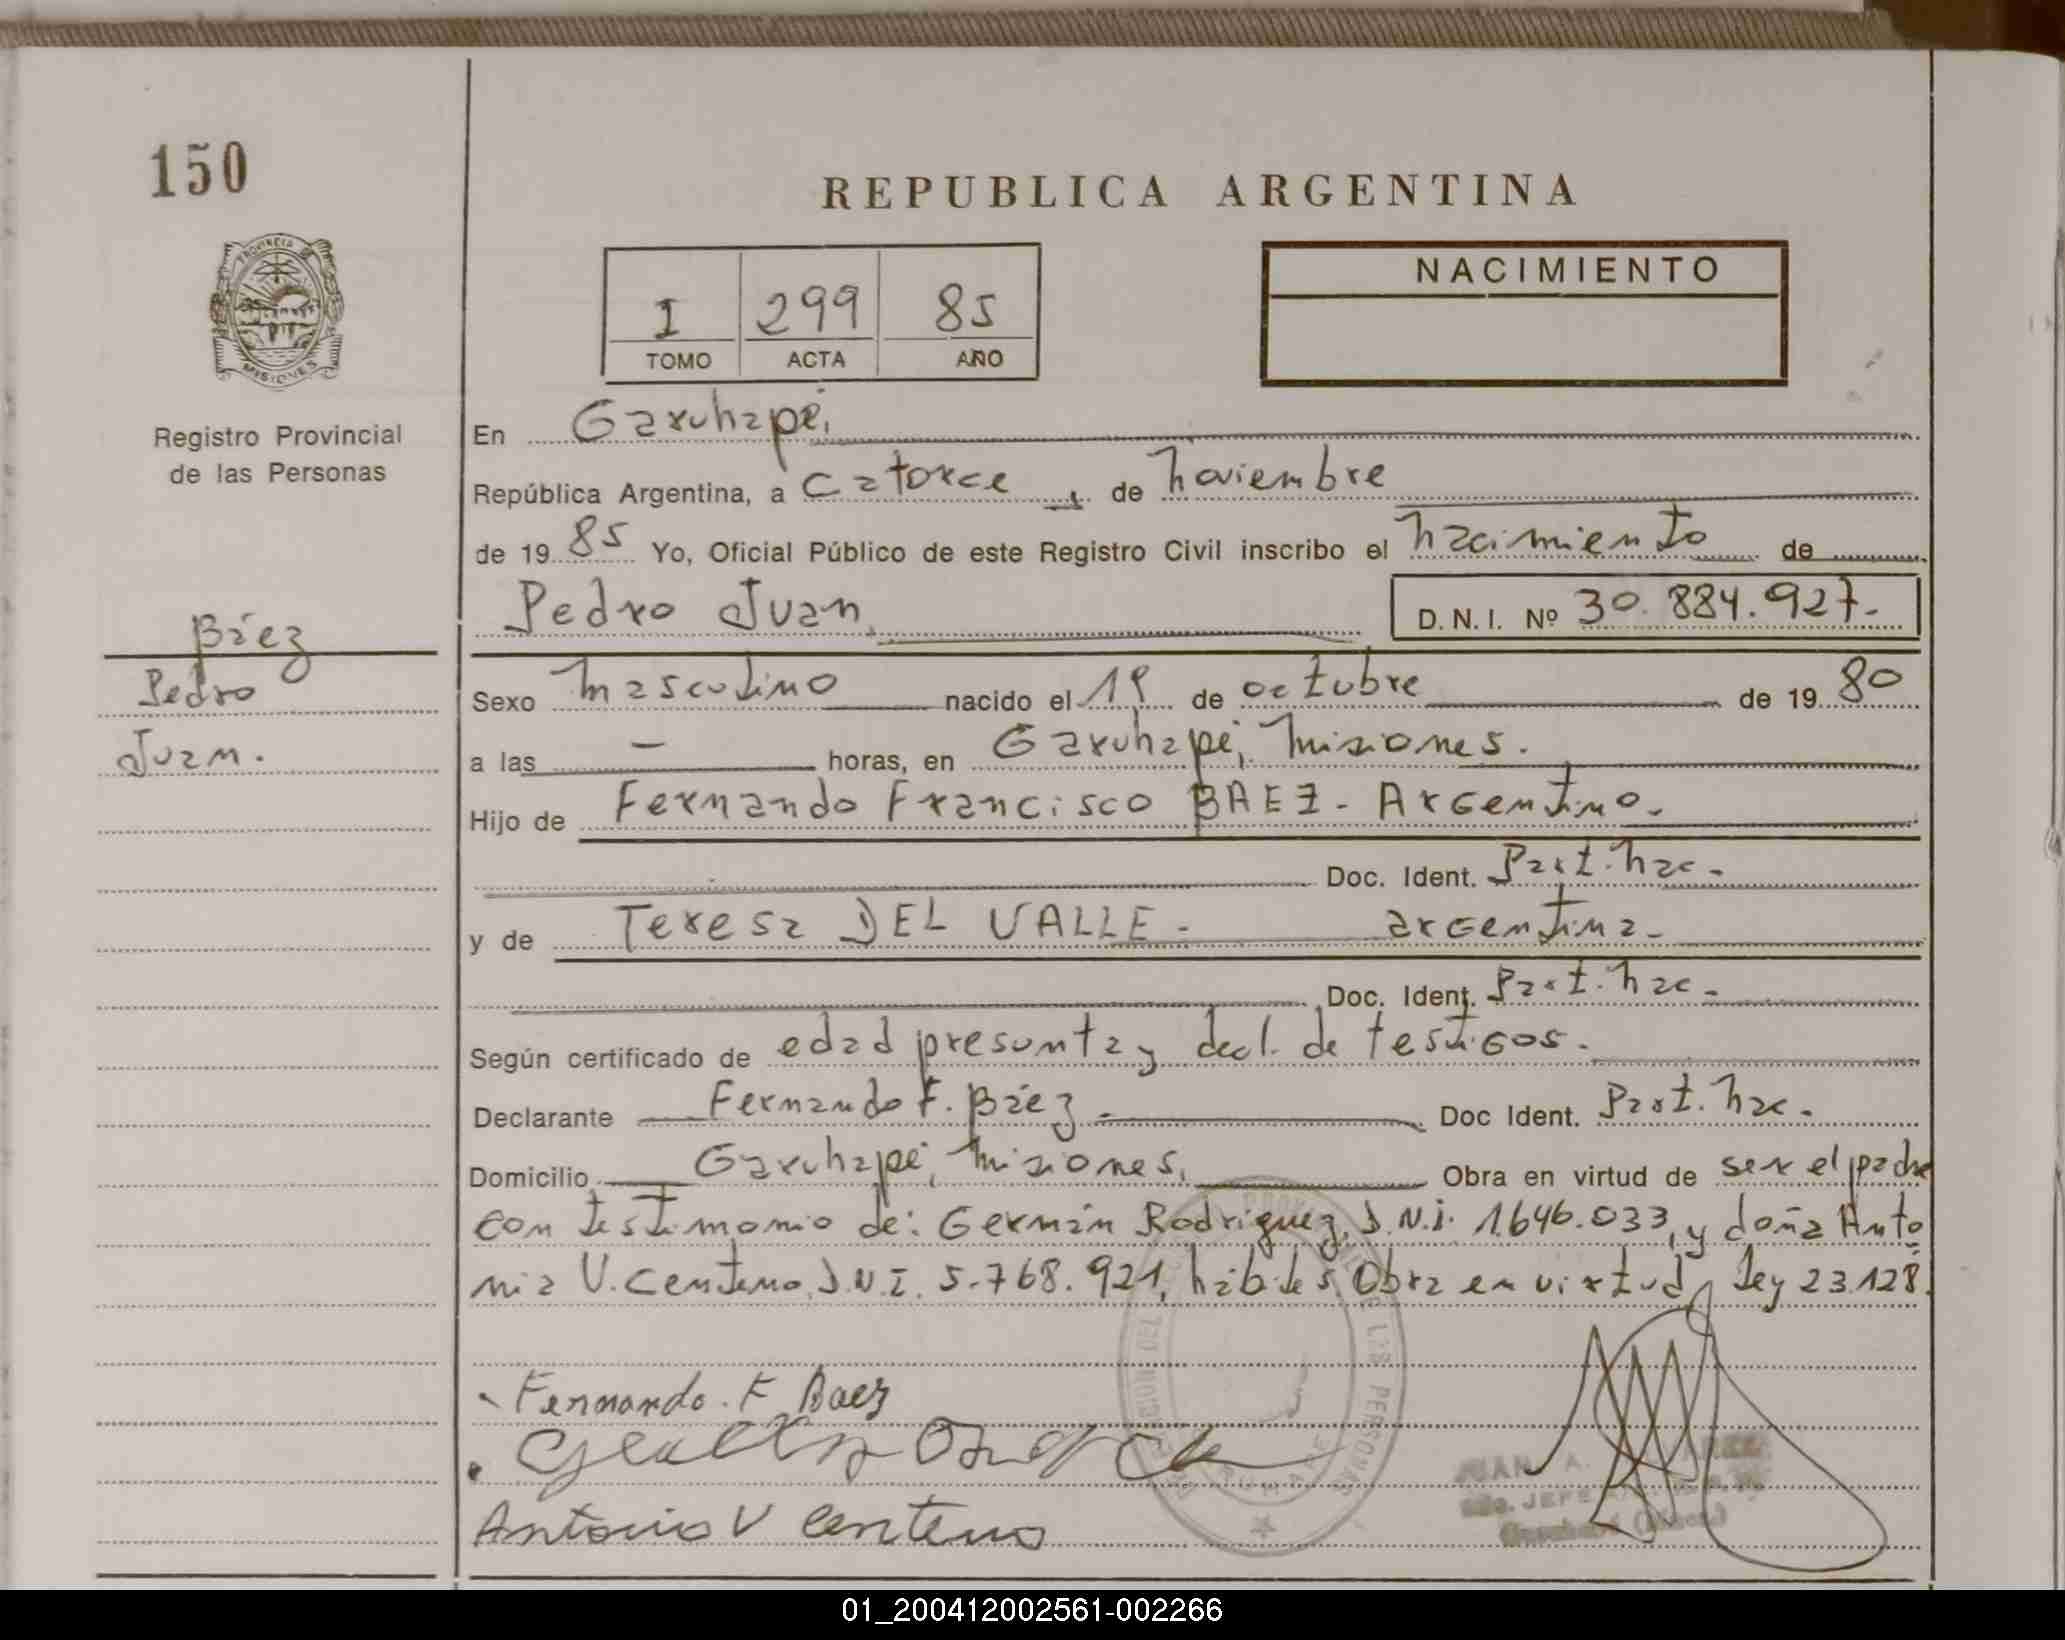 150
REPUBLICA ARGENTINA
PROVINCIA
MISIONES
I 299 85
TOMO ACTA AÑO
NACIMIENTO
Registro Provincial
de las Personas
En Garuhapé,
República Argentina, a catorce, de noviembre
de 1985 Yo, Oficial Público de este Registro Civil inscribo el nacimiento de
Pedro Juan, D. N. I. Nº 30.884.927.-
Báez
Pedro
Juan.
Sexo masculino nacido el 19 de octubre de 1980
a las — horas, en Garuhapé, Misiones.
Hijo de Fernando Francisco BAEZ - Argentino.-
Doc. Ident. Part. nac.-
y de Teresa DEL VALLE - argentina.-
Doc. Ident. Part. nac.-
Según certificado de edad presunta y decl. de testigos.-
Declarante Fernando F. Báez.- Doc Ident. Part. nac.-
Domicilio Garuhapé, Misiones, Obra en virtud de ser el padre
con testimonio de: Germán Rodriguez, D.N.I. 1.646.033, y doña Anto
nia V. Centeno, D.N.I. 5.768.921, hábiles, Obra en virtud, Ley 23.128.
Fernando. F Baez
Antonia V Centeno
PERSONAS
JUAN A.
JEFE
01_200412002561-002266